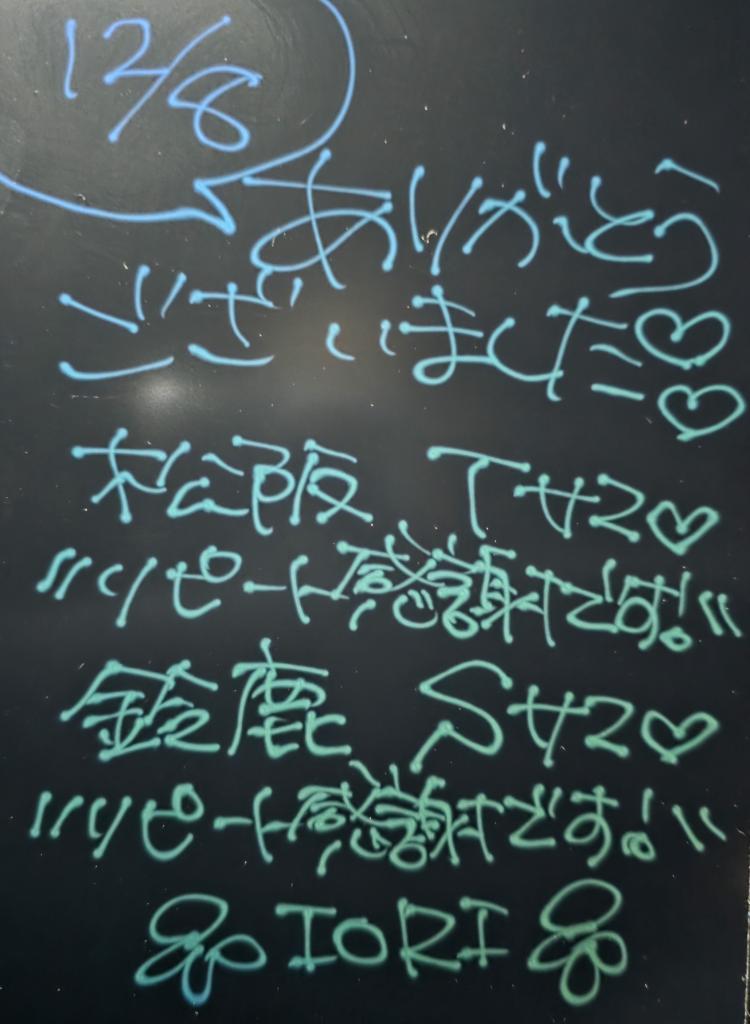 12/8
ありがとう
ございました♡♡
松阪 Tサマ♡
"リピート感謝です!"
鈴鹿 Sサマ♡
"リピート感謝です!"
IORI